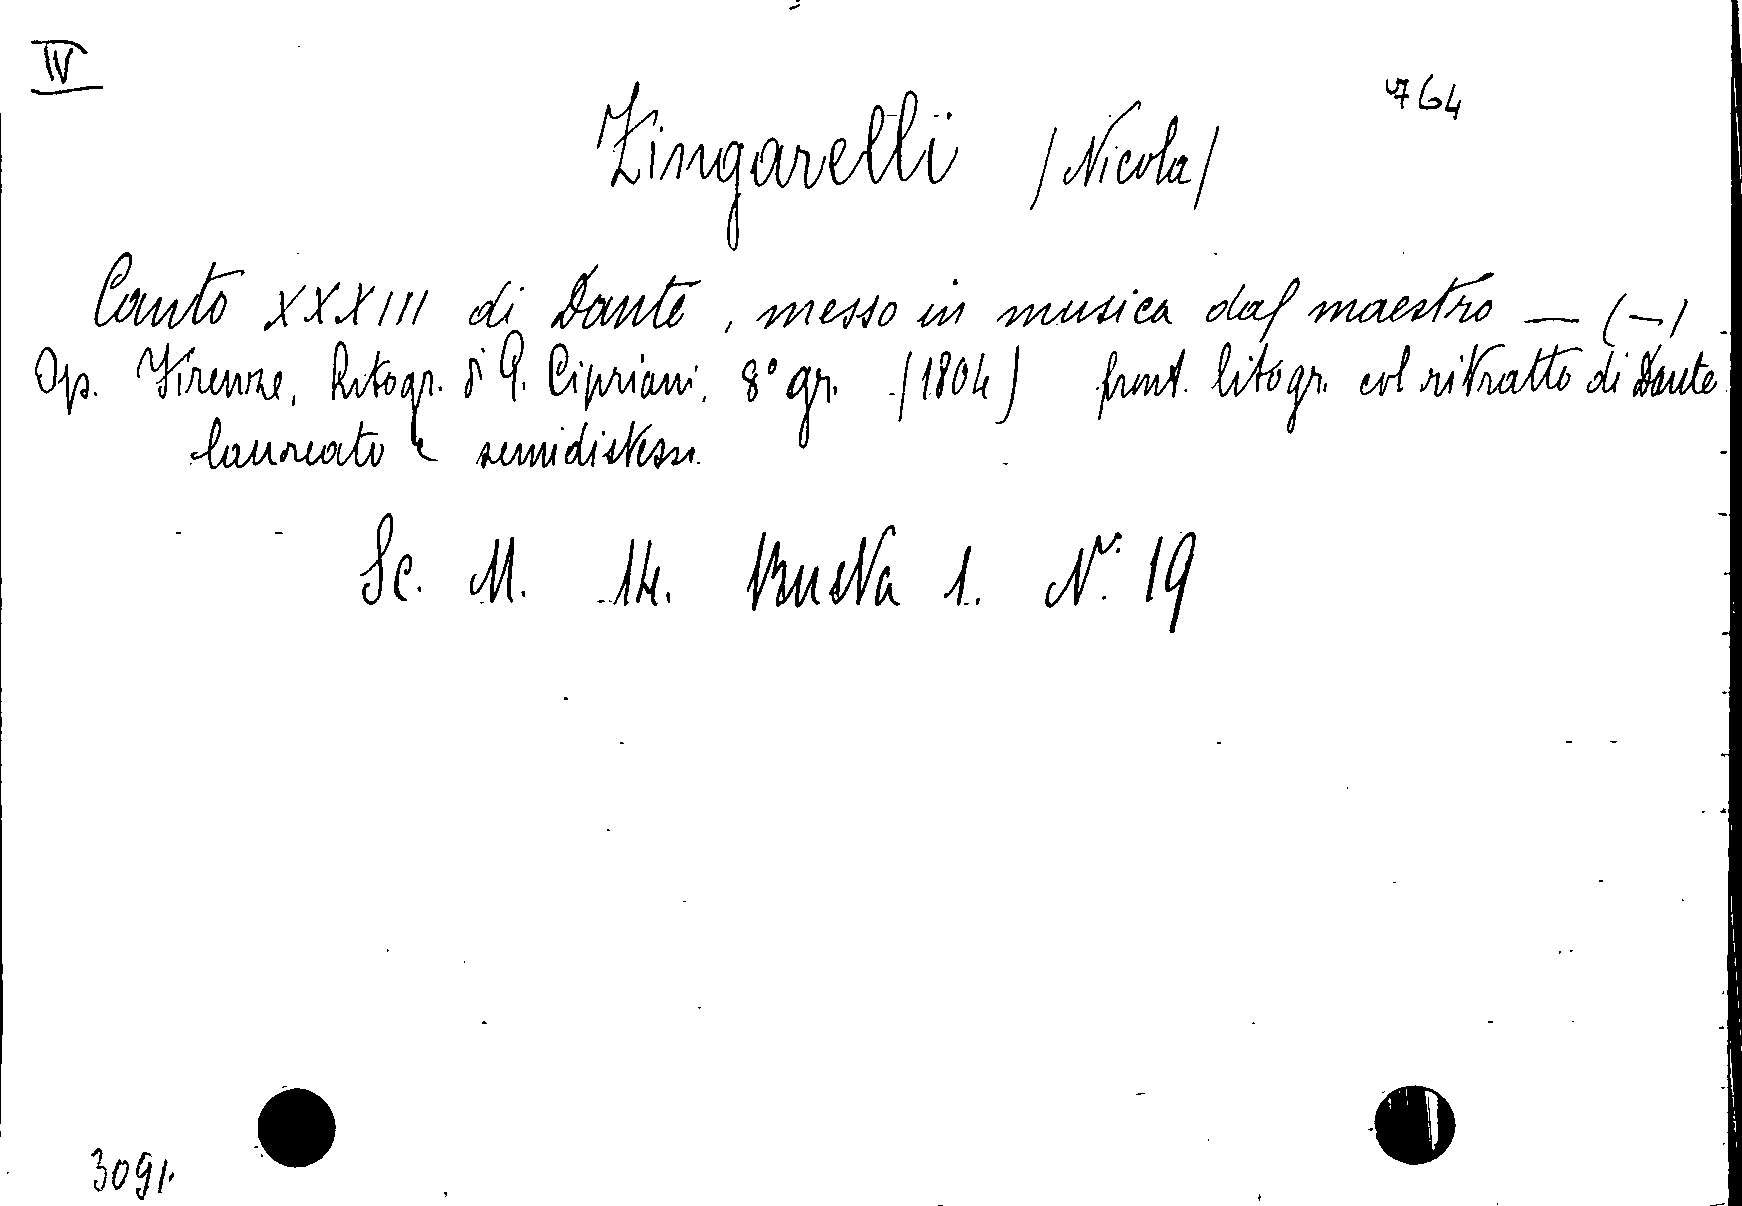 IV
764
Zingarelli (Nicola)
Canto XXXIII di Dante, messo in musica dal maestro — (—)
Op. Firenze, Litogr. di G. Cipriani, 8° gr. (1804) front. litogr. col ritratto di Dante
laureato e
Sc. M. 14. Busta 1. N. 19
3091.